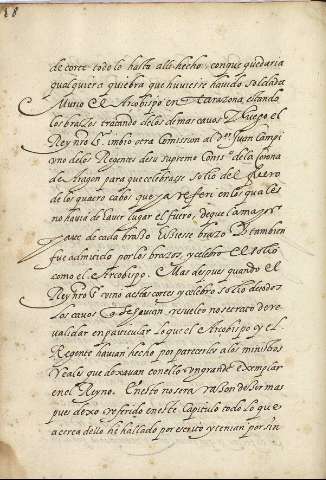 88
de corte todo lo hasta alli hecho, con que quedaria
qualquiera quiebra que huuiesse hauido soldada
Murio El Arcobispo en Taracona estando
los brazos tratando de los demas cauos Y luego el
Rey nro S.r imbio otra Comission al D.or Juan Campi
uno de los Regentes de su supremo Cons.o de la corona
de Aragon para que celebrasse solio del fuero
de los quatro cabos que ya referi en los quales
no hauia de hauer lugar el fuero, de que la mayor
parte de cada brazo hiciesse brazo Y tambien
fue admitido por los brazos, y celebro El solio
como el Arcobispo. Mas despues quando El
Rey nro S.r vino a estas cortes y celebro solio de todos
los cauos q̃ estauan resueltos no se trato de re
validar en particular lo que el Arcobispo y El
Regente hauian hecho por parecerle a los ministros
Reales que dexauan con ello un grande exemplar
en el Reyno. En esto no sera razon dezir mas
pues dexo referido en este Capitulo todo lo que
acerca dello he hallado por escrito y tenian por sin